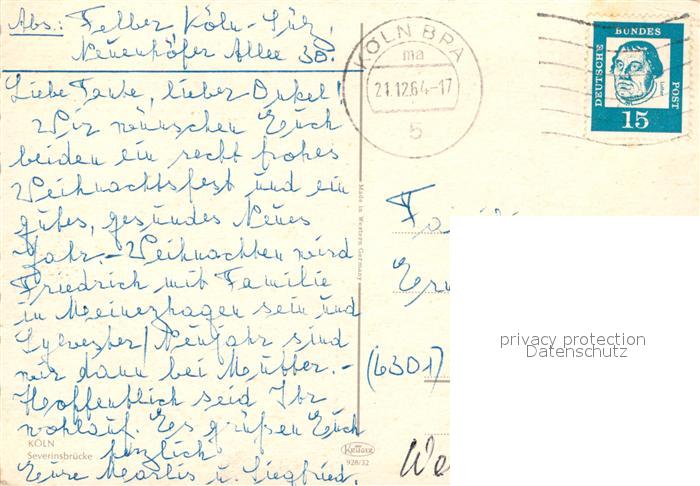 Abs.: Felber Köln-Sülz,
Neuenhöfer Allee 30.
Liebe Tante, lieber Onkel!
Wir wünschen Euch
beiden ein recht frohes
Weihnachtsfest und ein
gutes, gesundes Neues
Jahr. - Weihnachten wird
Friedrich mit Familie
in Meinerzhagen sein und
Sylvester/Neujahr sind
wir dann bei Mutter. -
Hoffentlich seid Ihr
wohlauf. Es grüßen Euch
herzlich
Eure Marlis u. Siegfried.
KÖLN
Severinsbrücke
Made in Western Germany
Krüger
928/32
KÖLN BPA
ma
21.12.64-17
5
DEUTSCHE
BUNDES
POST
15
(6301)
privacy protection
Datenschutz